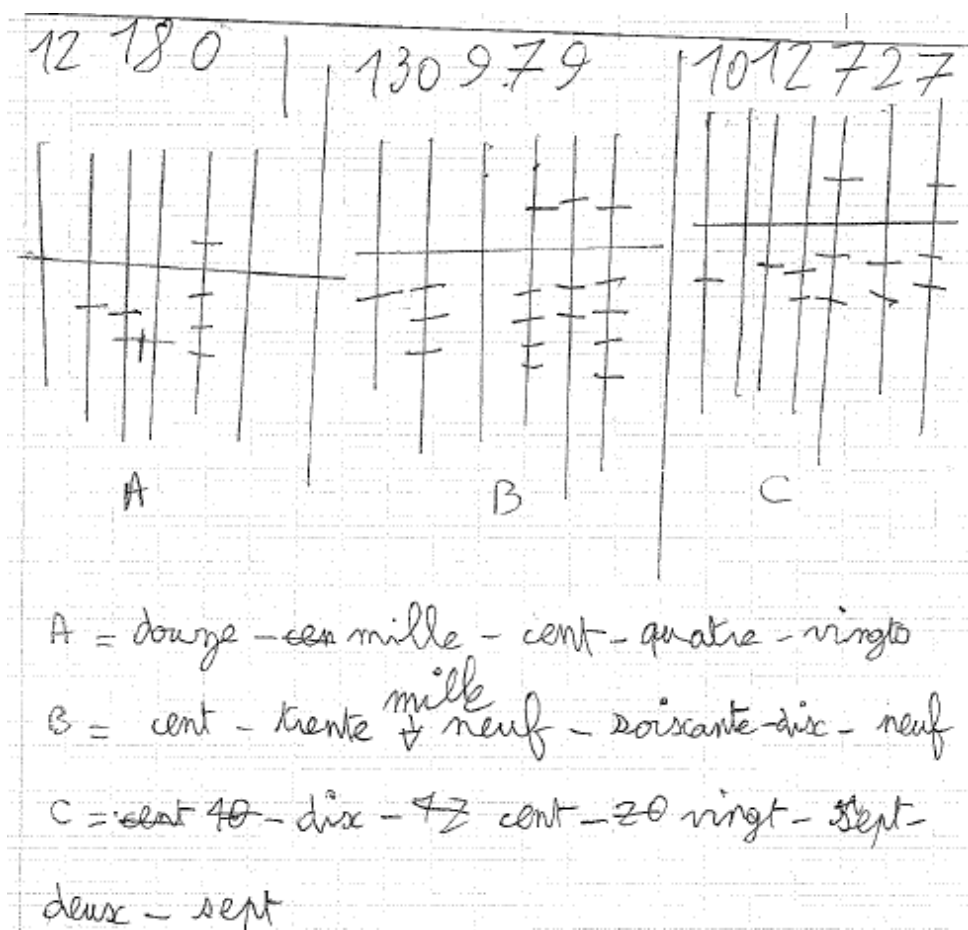 12 180
130 9.79
1012727
A
B
C
A = douze - mille - cent - quatre - vingts
B = cent - trente mille neuf - soixante-dix - neuf
C = dix - cent - vingt - sept -
deux - sept